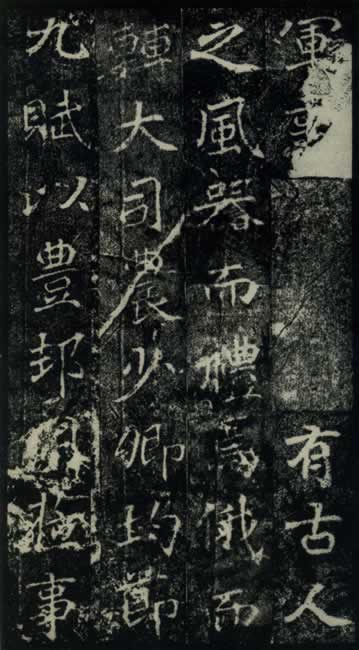 軍有古人
之風器而禮焉俄而
轉大司農少卿均節
九賦以豊邦事